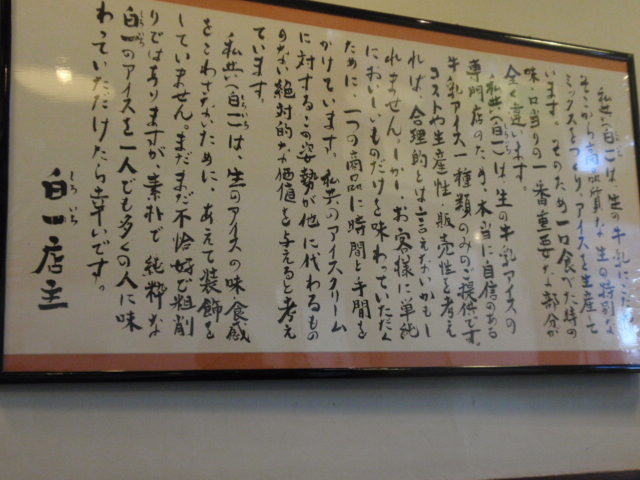 私共(白一)は、生の牛乳にこだ
そこから高品質な、生の特別な
ミックスをつくりアイスを生産して
います。そのため一口食べた時の
味・口当りの一番重要な部分が
全く違います。
私共(白一)は、生の牛乳アイスの
専門店のため、本当に自信のある
牛乳アイス一種類のみのご提供です。
コストや生産性、販売性を考え
れば、合理的とは言えないかもし
れません。しかし、お客様に単純
においしいものだけを味わっていただく
ために、一つの商品に時間と手間を
かけています。私共のアイスクリーム
に対するこの姿勢が他に代わるもの
のない絶対的な価値を与えると考え
ています。
私共(白一)は、生のアイスの味・食感
をこわさないために、あえて装飾を
していません。まだまだ不恰好で粗削
りではありますが、素朴で純粋な
白一のアイスを一人でも多くの人に味
わっていただけたら幸いです。
白一店主